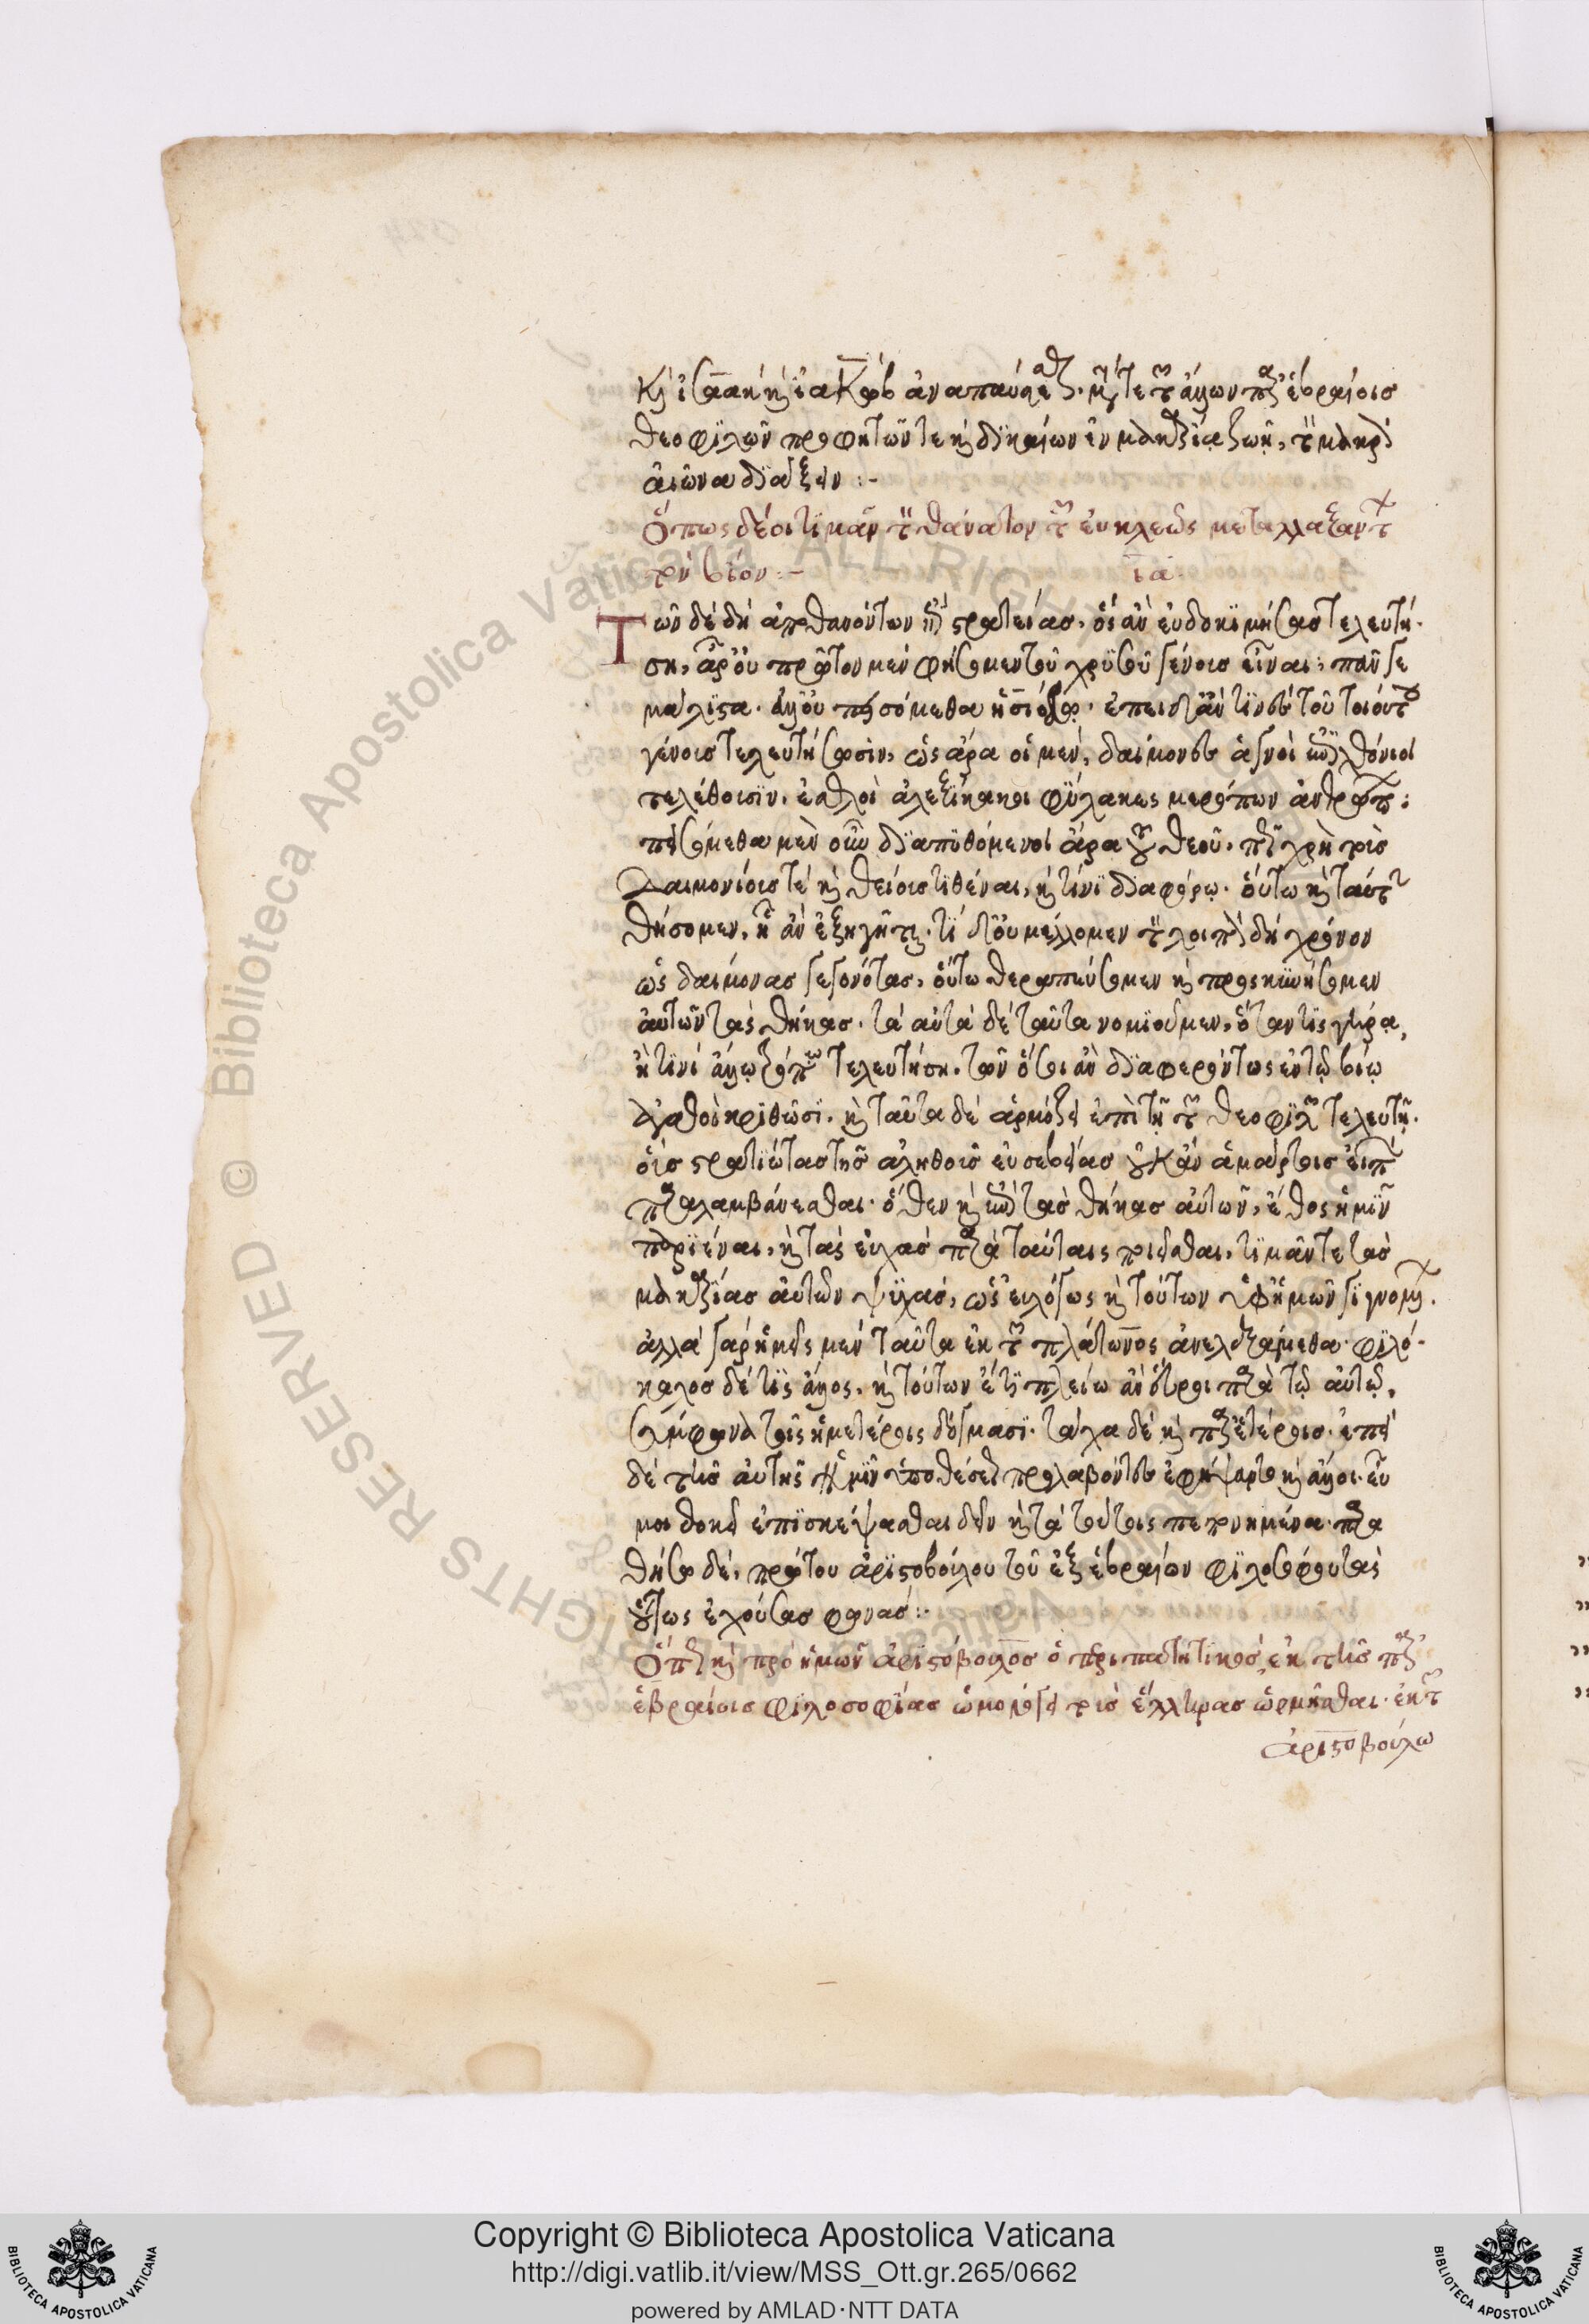 καὶ ἰσαὰκ καὶ ἰακὼβ ἀναπαύεσθαι. μετά τε τῶν ἄλλων παρ' ἑβραίοις
θεοφιλῶν προφητῶν τε καὶ δικαίων ἐν μακαρίᾳ ζωῇ, τὸν μακρὸν
αἰῶνα διάξειν :-
Ὅπως δέοι τιμᾶν τὸν θάνατον τῶν εὐκλεῶς μεταλλαξάντων
τὸν βίον :- ια
Τῶν δὲ δὴ ἀποθανόντων ἐπὶ στρατείας. ὃς ἂν εὐδοκιμήσας τελευτή-
σῃ, ἆρ' οὐ πρῶτον μὲν φήσομεν τοῦ χρυσοῦ γένους εἶναι; πάν γε
μάλιστα. ἀλλ' οὐ πεισόμεθα ἡσιόδῳ. ἐπειδὰν τινες τοῦ τοιούτου
γένους τελευτήσωσιν, ὡς ἄρα οἱ μὲν, δαίμονες ἁγνοὶ ἐπιχθόνιοι
τελέθουσιν. ἐσθλοὶ ἀλεξίκακοι φύλακες μερόπων ἀνθρώπων :
πεισόμεθα μὲν οὖν διαπυθόμενοι ἄρα τοῦ θεοῦ. πῶς χρὴ τοὺς
δαιμονίους τε καὶ θείους τιθέναι, καὶ τίνι διαφόρῳ. οὕτω καὶ ταύτῃ
θήσομεν, ᾗ ἂν ἐξηγῆται. τί δ' οὐ μέλλομεν τὸν λοιπὸν δὴ χρόνον
ὡς δαίμονας γεγονότας, οὕτω θεραπεύσομεν καὶ προσκυνήσομεν
αὐτῶν τὰς θήκας. τὰ αὐτὰ δὲ ταῦτα νομιοῦμεν, ὅταν τις γήρᾳ,
ἤ τινι ἄλλῳ τρόπῳ τελευτήσῃ. τῶν ὅσοι ἂν διαφερόντως ἐν τῷ βίῳ
ἀγαθοὶ κριθῶσι. καὶ ταῦτα δὲ ἁρμόζει ἐπὶ τῇ τῶν θεοφιλῶν τελευτῇ.
οὓς στρατιώτας τῆς ἀληθοῦς εὐσεβείας οὐκ ἂν ἁμάρτοις εἰπὼν
παραλαμβάνεσθαι. ὅθεν καὶ ἐπὶ τὰς θήκας αὐτῶν, ἔθος ἡμῖν
παριέναι, καὶ τὰς εὐχὰς παρὰ ταύταις ποιεῖσθαι, τιμᾶν τε τὰς
μακαρίας αὐτῶν ψυχάς, ὡς εὐλόγως καὶ τούτων ὑφ' ἡμῶν γιγνομένων.
ἀλλὰ γὰρ ἡμεῖς μὲν ταῦτα ἐκ τῶν πλάτωνος ἀνελεξάμεθα. φιλό-
καλος δέ τις ἄλλος. καὶ τούτων ἔτι πλείω ἂν εὕροι παρὰ τῷ αὐτῷ,
σύμφωνα τοῖς ἡμετέροις δόγμασι. τάχα δὲ καὶ παρ' ἑτέροις. ἐπεὶ
δὲ τῆς αὐτῆς ἡμῖν ὑποθέσεως προλαβόντες ἐφήψαντο καὶ ἄλλοι. εὖ
μοι δοκεῖ ἐπισκέψασθαι δεῖν καὶ τὰ τούτοις πεπονημένα. παρα
θήσω δὲ, πρώτου ἀριστοβούλου τοῦ ἐξ ἑβραίων φιλοσόφου τὰς
οὕτως ἐχούσας φωνάς :-
Ὅπως καὶ πρὸ ἡμῶν ἀριστόβουλος ὁ περιπατητικὸς, ἐκ τῆς παρ'
ἑβραίοις φιλοσοφίας ὡμολόγει τοὺς ἕλληνας ὡρμῆσθαι. ἐκ τῶν
ἀριστοβούλω
Copyright © Biblioteca Apostolica Vaticana
http://digi.vatlib.it/view/MSS_Ott.gr.265/0662
powered by AMLAD·NTT DATA